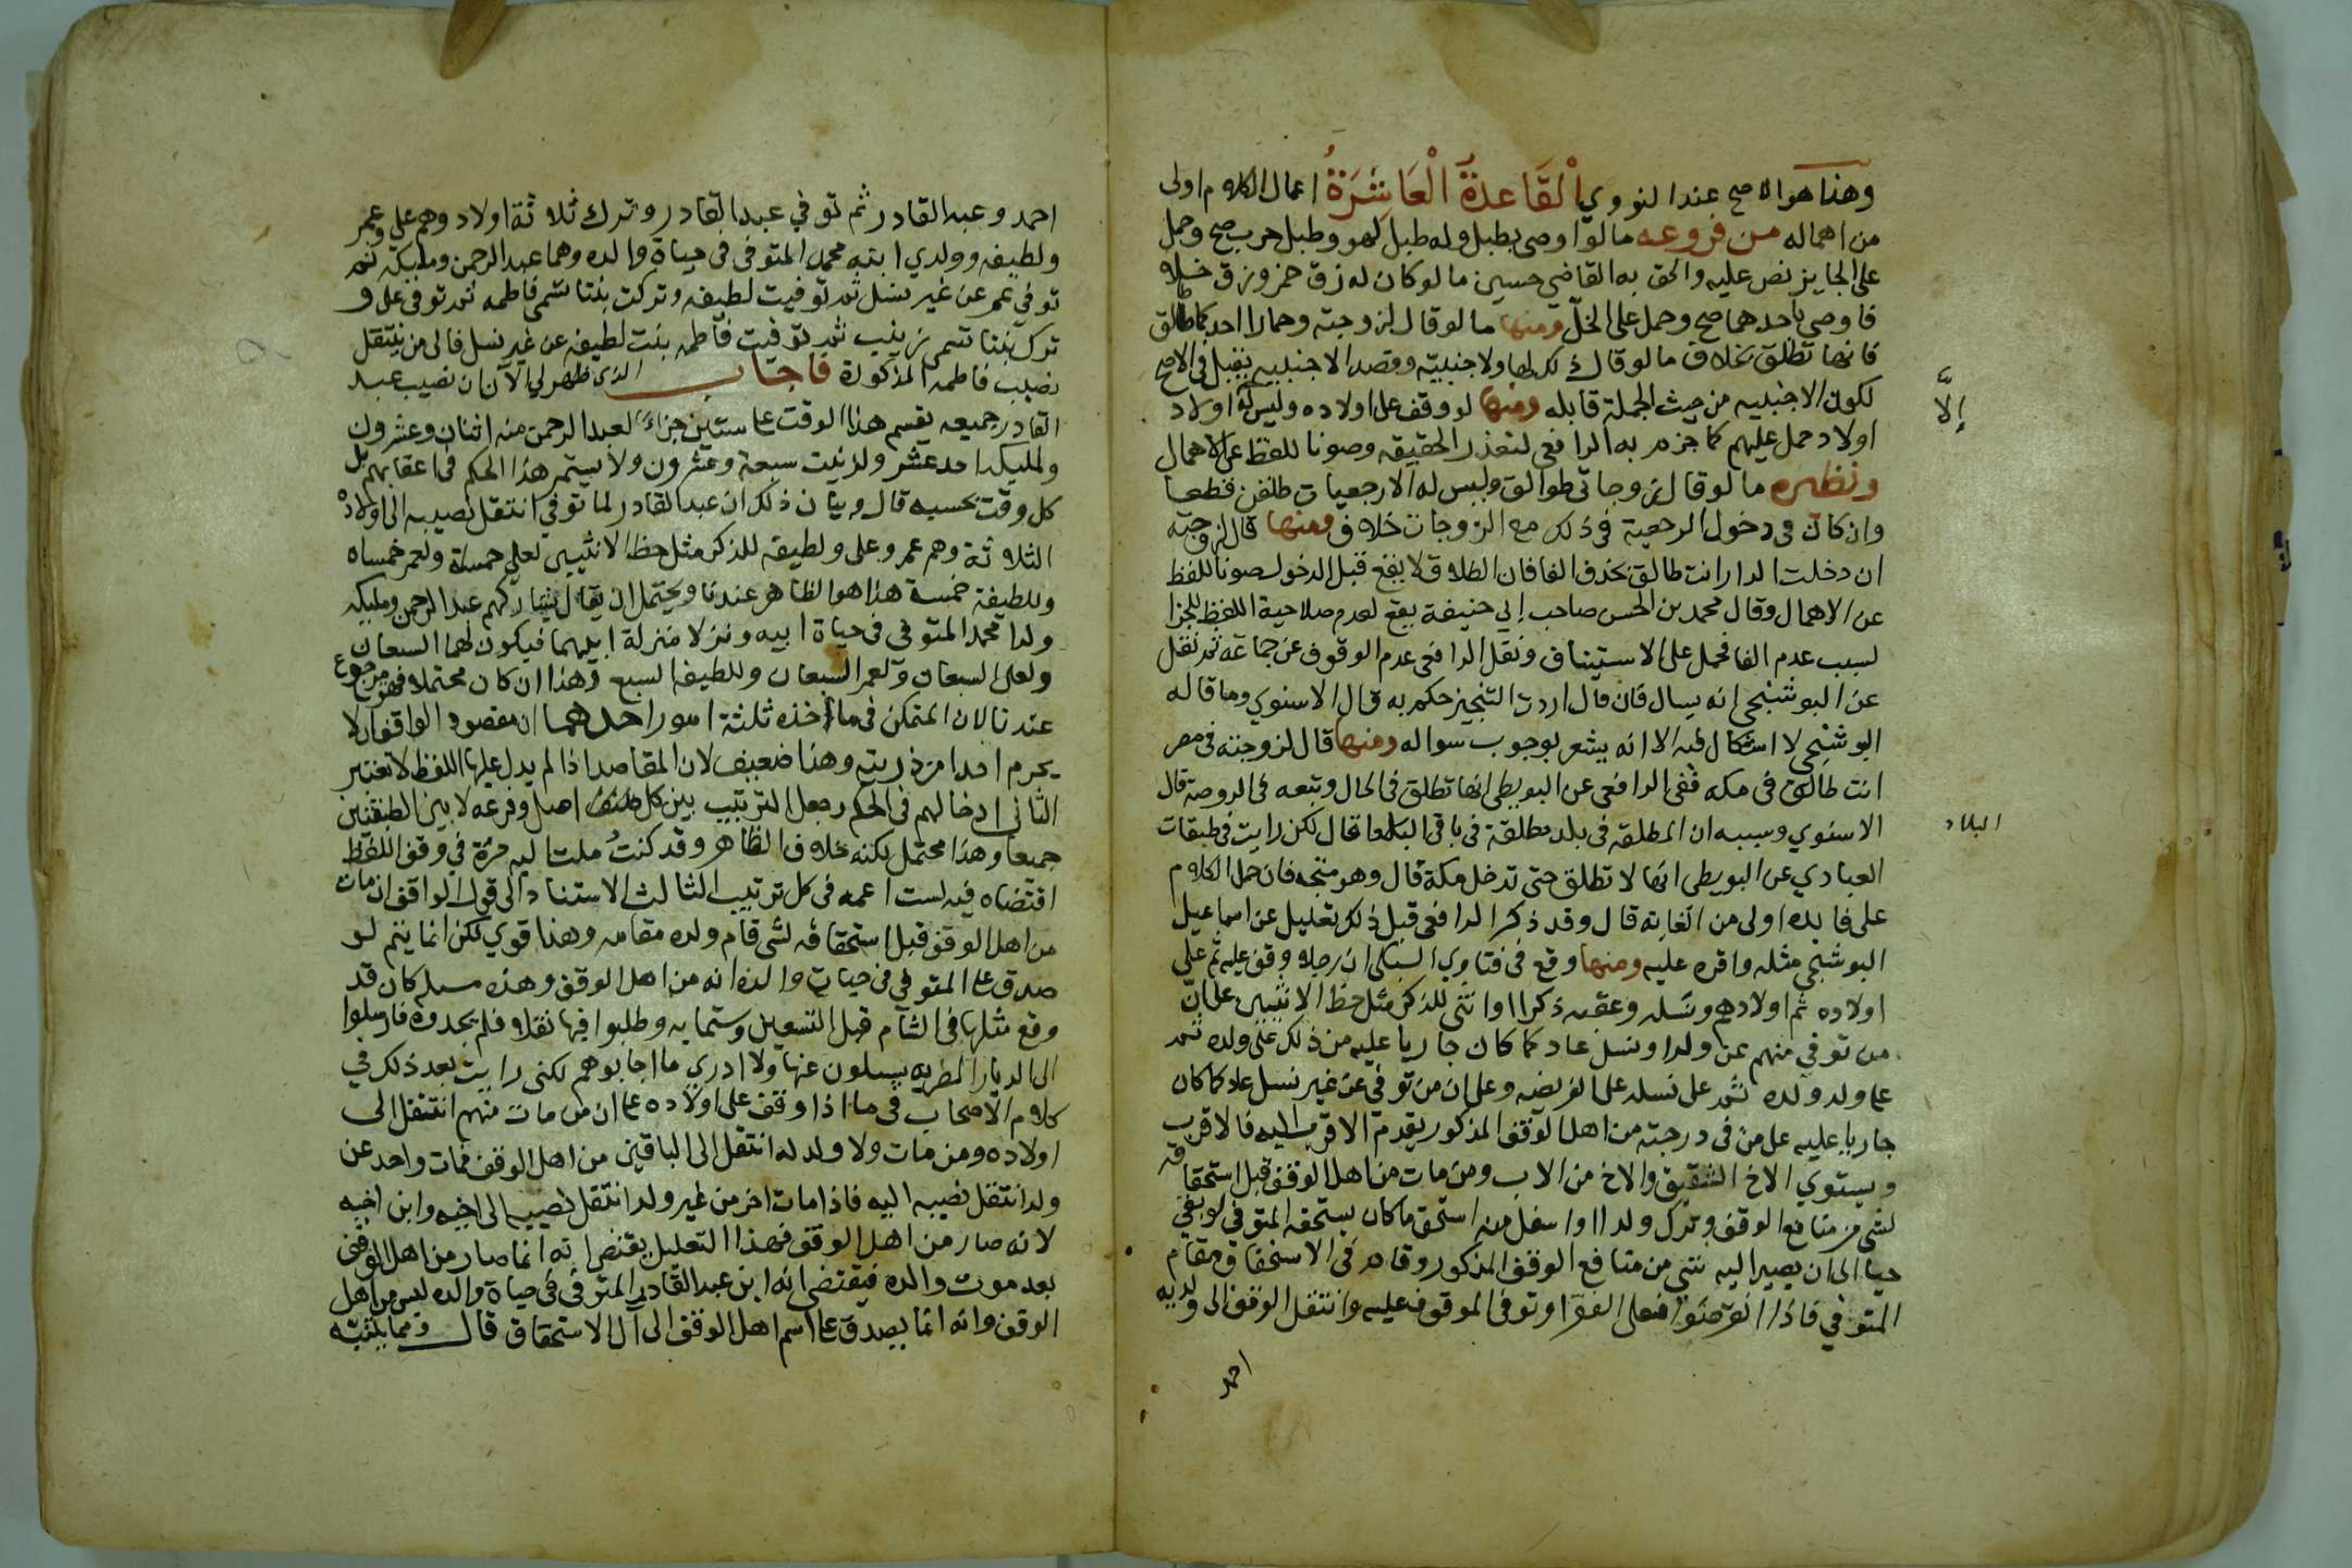 وهذا هو الاصح عند النووي الْقَاعِدَةُ الْعَاشِرَةُ اعمال الكلام اولى
من اهماله من فروعه ما لو اوصى بطبل وله طبل لهو وطبل حرب صح وحمل
على الجايز نص عليه والحق به القاضي حسين ما لو كان له زق خمر وزق خل
فاوصى باحدهما صح وحمل على الخل ومنها ما لو قال لزوجته وحمار احدكما طالق
فانها تطلق بخلاف ما لو قال ذلك لها ولاجنبية وقصد الاجنبيه يقبل في الاصح
لكون الاجنبيه من حيث الجملة قابله ومنها لو وقف على اولاده وليس له اولاد
إلاَّ
اولاد حمل عليهم كما جزم به الرافعي لتعذر الحقيقه وصونا للفظ عن الاهمال
ونظيره ما لو قال زوجاتي طوالق وليس له الا رجعيات طلقن قطعا
وان كان في دخول الرجعية في ذلك مع الزوجات خلاف ومنها قال لزوجته
ان دخلت الدار انت طالق بحذف الفا فان الطلاق لا يقع قبل الدخول صونا للفظ
عن الاهمال وقال محمد بن الحسن صاحب ابي حنيفة يقع لعدم صلاحية اللفظ للجزا
بسبب عدم الفا فحمل على الاستيناف ونقل الرافعي عدم الوقوف عن جماعة ثم نقل
عن البوشنجي انه يسال فان قال اردت التنجيز حكم به قال الاسنوي وما قاله
البوشنجي لا اشكال فيه الا انه يشعر بوجوب سواله ومنها قال لزوجته في مصر
انت طالق في مكه ففي الرافعي عن البويطي انها تطلق في الحال وتبعه في الروضة قال
الاسنوي وسببه ان المطلقه في بلد مطلقة في باقي قال لكن رايت في طبقات
البلاد
العبادي عن البويطي انها لا تطلق حتى تدخل مكة قال وهو متجه فان حمل الكلام
على فايده اولى من الغايه قال وقد ذكر الرافعي قبل ذلك بقليل عن اسماعيل
البوشنجي مثله واقره عليه ومنها وقع في فتاوي السبكي ان رجلا وقف عليه ثم على
اولاده ثم اولادهم ونسله وعقبه ذكرا او انثى للذكر مثل حظ الانثيين على انّ
من توفي منهم عن ولد او نسل عاد ما كان جاريا عليه من ذلك على ولده ثم
على ولد ولده ثم على نسله على الفريضه وعلى ان من توفي عن غير نسل عاد ما كان
جاريا عليه على من في درجته من اهل الوقف المذكور يقدم الاقرب اليه فالاقرب
ويستوي الاخ الشقيق والاخ من الاب ومن مات من اهل الوقف قبل استحقاقه
لشي من منافع الوقف وترك ولدا او اسفل منه استحق ما كان يستحقه المتوفي لو بقي
حيا الى ان يصير اليه شي من منافع الوقف المذكور وقام في الاستحقاق مقام
المتوفي فاذا انقرضوا فعلى الفقرا وتوفي الموقوف عليه وانتقل الوقف الى ولديه
احمد
احمد وعبد القادر ثم توفي عبد القادر وترك ثلاثة اولاد وهم على وعمر
ولطيفه وولدي ابنه محمد المتوفى في حياة والده وهما عبد الرحمن ومليكه ثم
توفي عمر عن غير نسل ثم توفيت لطيفه وتركت بنتا تسمى فاطمه ثم توفي على و
ترك بنتا تسمى زينب ثم توفيت فاطمه بنت لطيفه عن غير نسل فالى من ينتقل
نصيب فاطمه المذكورة فاجاب الذي ظهر لي الآن ان نصيب عبد
القادر جميعه يقسم هذا الوقت على ستين جزاءً لعبد الرحمن منه اثنان وعشرون
ولمليكه احد عشر ولزينب سبعة وعشرون ولا يستمر هذا الحكم في اعقابهم بل
كل وقت بحسبه قال وبيان ذلك ان عبد القادر لما توفي انتقل نصيبه الى اولاده
الثلاثة وهم عمر وعلى ولطيفه للذكر مثل حظ الانثيين لعلي خمساه ولعمر خمساه
وللطيفة خمسة هذا هو الظاهر عندنا ويحتمل ان يقال يشاركهم عبد الرحمن ومليكه
ولدا محمد المتوفي في حياة ابيه ونزلا منزلة ابيهما فيكون لهما السبعان
ولعلى السبعان ولعمر السبعان وللطيفه السبع وهذا ان كان محتملا فهو مرجوع
عندنا لان المتمكن في ماخذه ثلثة امور احدها ان مقصود الواقف ان لا
يحرم احدا من ذريته وهذا ضعيف لان المقاصد اذا لم يدل عليها اللفظ لا تعتبر
الثاني ادخالهم في الحكم وجعل الترتيب بين كل اصل وفرعه لا بين الطبقتين
جميعا وهذا محتمل لكنه خلاف الظاهر وقد كنتُ ملت اليه مرة في وقف اللفظ
اقتضاه فيه لست اعمه في كل ترتيب الثالث الاستناد الى قول الواقف ان مات
من اهل الوقف قبل استحقاقه لشي قام ولده مقامه وهذا قوي لكن انما يتم لو
صدق على المتوفي في حياة والده انه من اهل الوقف وهذه مسله كان قد
وقع مثلها في الشام قبل التسعين وستمايه وطلبوا فيها نقلا فلم يجدوه فارسلوا
الى الديار المصريه يسلون عنها ولا ادري ما اجابوهم لكني رايت بعد ذلك في
كلام الاصحاب في ما اذا وقف على اولاده على ان من مات منهم انتقل الى
اولاده ومن مات ولا ولد له انتقل الى الباقين من اهل الوقف فمات واحد عن
ولد انتقل نصيبه اليه فاذا مات اخر من غير ولد انتقل نصيبه الى اخيه وابن اخيه
لانه صار من اهل الوقف فهذا التعليل يقتضي انه انما صار من اهل الوقف
بعد موت والده فيقتضي انه ابن عبد القادر المتوفي في حياة والده ليس من اهل
الوقف وانه انما يصدق على اسم اهل الوقف الى آل الاستحقاق قال ومما يتنبه